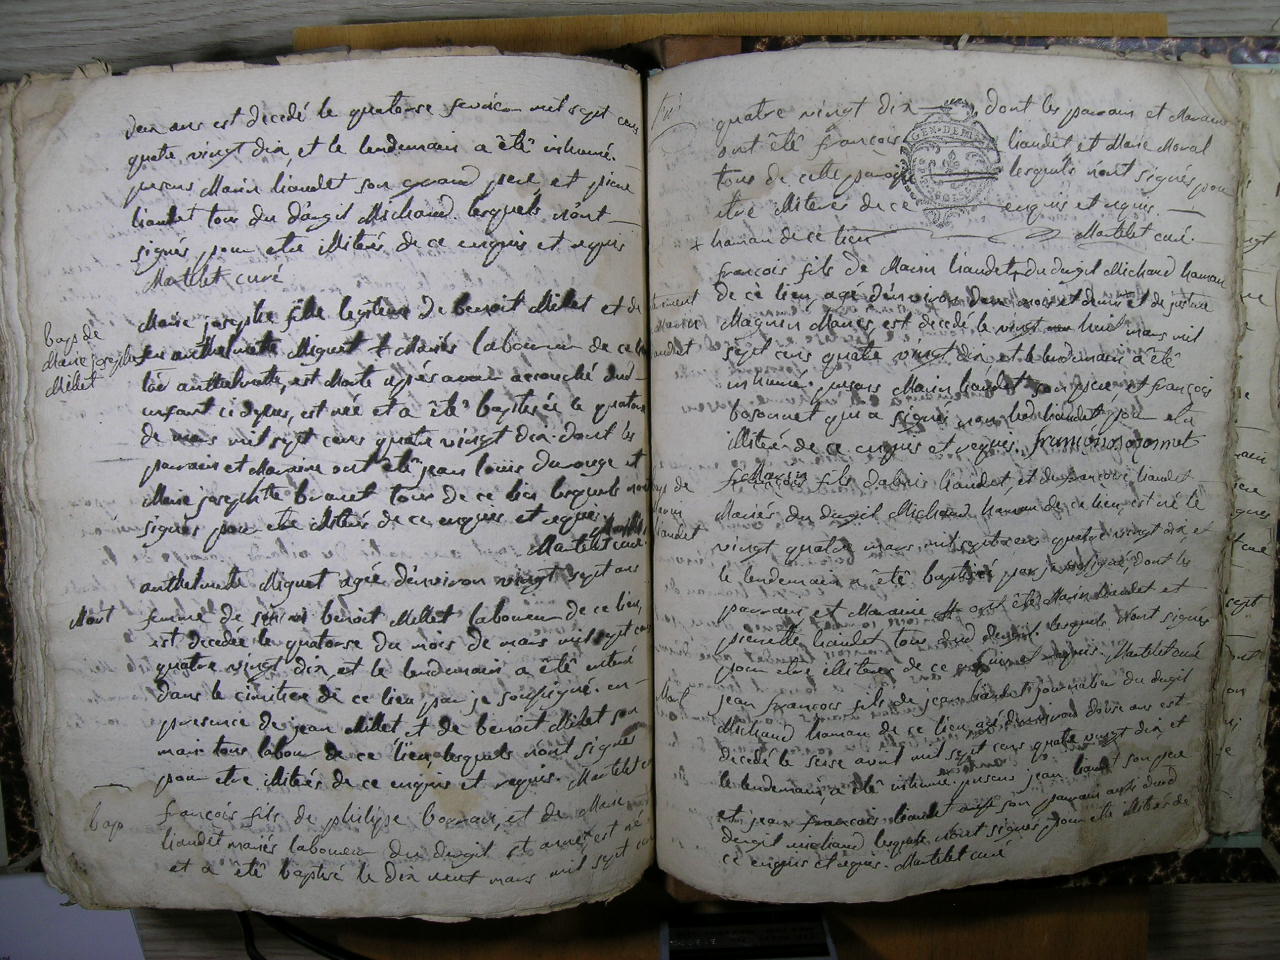 deux ans est decedé le quatorse fevrier mil sept cens
quatre vingt dix, et le lendemain a été inhumé.
presens Marin liaudet son grand pere et pierre
liaudet tous du dugit Michaud lesquels n'ont
signés pour etre illiterés de ce enquis et requis
Martelet curé
bapt de
Marie josephte
Millet
Marie josephte fille legitime de benoit Millet et de
feu anthelmette Miguet + Mariés laboureur de ce lieu
laditte anthelmette est Morte après avoir accouché dud
enfant ci dessus, est née et a été baptisée le quatorse
de mars mil sept cens quatre vingt dix. dont les
parrain et Marraine ont été jean louis durouge et
Marie josephte bornet tous de ce lieu lesquels n'ont
signés pour etre illiterés de ce enquis et requis
Martelet curé
anthelmette Miguet agée d'environ vingt sept ans
Mort
femme de benoit Millet laboureur de ce lieu,
est decedée le quatorse du mois de mars mil sept cens
quatre vingt dix, et le lendemain a été enterré
dans le cimitiere de ce lieu par je soussigné. en
presence de jean Millet et de benoit Millet son
mari tous labour. de ce lieu lesquels n'ont signés
pour etre illiterés de ce enquis et requis. Martelet
bap
françois fils de philipe et de Marie
liaudet mariés laboureur du dugit est né
et a été baptisé le dix neuf mars mil sept cens
quatre vingt dix dont les parrain et Marraine
ont été françois liaudet et Marie Moral
GEN. DE
tous de cette paroisse lesquels n'ont signés pour
etre illiterés de ce enquis et requis.
+ hameau de ce lieu Martelet curé.
françois fils de Marin liaudet, du dugit Michaud hameau
de ce lieu agé d'environ deux mois et demi et de
Mariés est decedé le vingt huit mars mil
sept cens quatre vingt dix et le lendemain a été
inhumé. presens Marin liaudet son pere, et françois
bosonnet qui a signé non led liaudet pour etre
illiteré de ce enquis et requis. francois bosonnet
bap de
Marin
liaudet
Marin
fils liaudet, et de françoise liaudet
Mariés du dugit Michaud hameau de ce lieu est né le
vingt quatre mars mil sept cens quatre vingt dix, et
le lendemain a été baptisé par je soussigné, dont les
parrain et Marraine ont été Marin liaudet et
pierrette liaudet tous dud dugit. lesquels n'ont signés
pour etre illiterés de ce enquis et requis. Martelet curé
Mort
jean françois fils de jean liaudet journalier du dugit
Michaud hameau de ce lieu agé d'environ ans est
decedé le seise avril mil sept cens quatre vingt dix, et
le lendemain, a été inhumé, presens jean liaudet son pere
et jean françois liaudet son parrain aussi dud
dugit michaud lesquels n'ont signés pour etre illiterés de
ce enquis et requis. Martelet curé